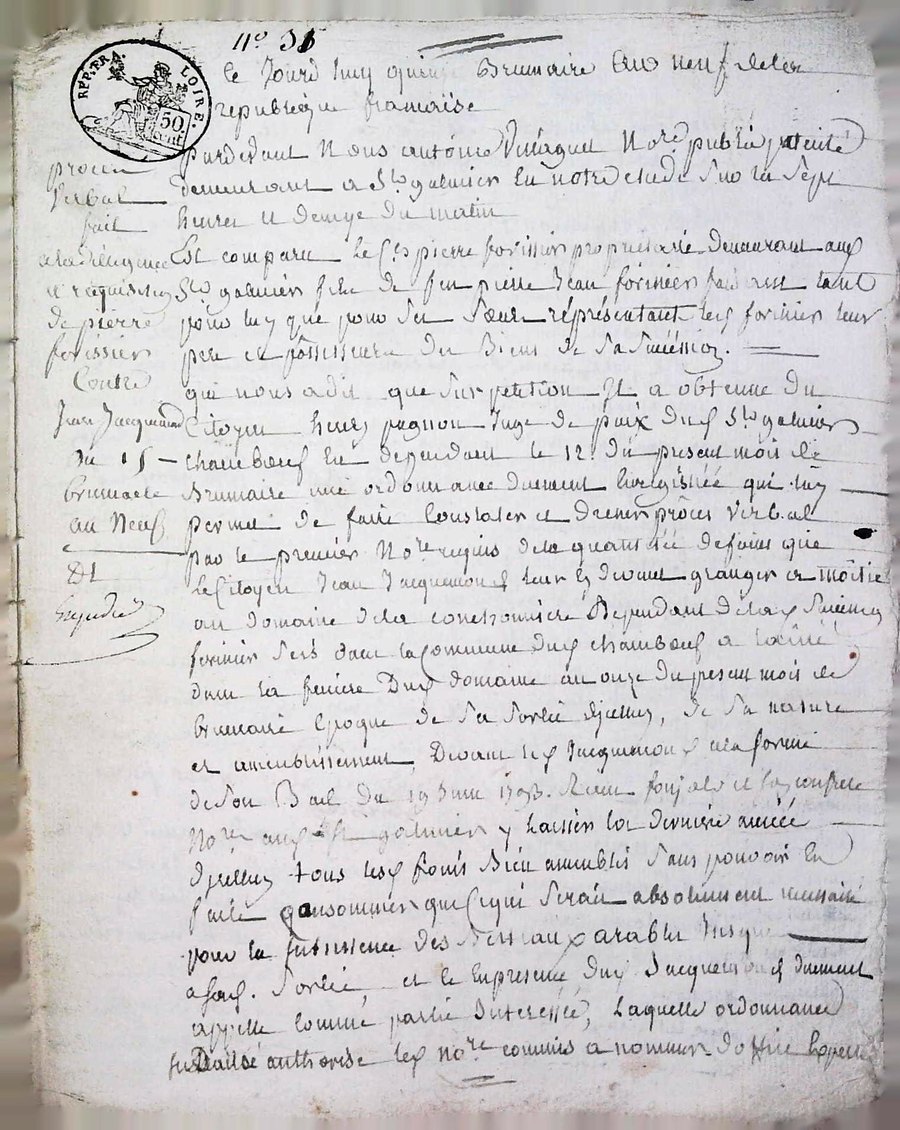 N° 35
REP. FRA.
LOIRE.
50
CENT
Le Jourd huy quinze Brumaire an neuf de la
republicque francaise
procès
Verbal
fait
a la diligence
et requisition
de pierre
forissier
Contre
Jean Jacquemond
du 15
brumaire
an Neuf
Et
Expedié
pardevant Nous antoine Not.re public patenté
demeurant a St galmier En notre etude Sur la Sept
heures et demye du matin
Est comparu Le C.en pierre forissier proprietaire demeurant aud.
St galmier fils de feu pierre Jean forissier faisant tant
pour luy que pour Ses Sœurs représentant led. forissier leur
pere et possesseurs des Biens de Sa Succession.
qui nous a dit que Sur petition Il a obtenue du
Citoyen henry pagnon Juge de paix dud. St galmier
chambœuf En dependant le 12. du present mois de
Brumaire une ordonnance duement Enregistrée qui luy
permet de faire Constater et dresser procès verbal
par le premier Not.re requis de la quantitée de foins que
le Citoyen Jean Jacquemond leur Cy devant granger a moitié
au domaine de la Dependant de lad. Succession
forissier Sis dans la Commune dud. chambœuf a
dans la feniere Dud. domaine au onze du present mois de
brumaire Epoque de Sa Sortie d'jcelluy, de Sa nature
et ameublissement, Devant led. Jacquemond a la forme
de Son Bail du 19 Juin 1793. Recu et Son confrere
Not.res aud. St galmier y laisser la derniere année
d'jcelluy tous les foins Bien ameublis Sans pouvoir En
faire qonsommer que Ce qui Serait absolument necessaire
pour la Subsistence des Bestiaux arables Jusqu
a Sad. Sortie, et ce En presence dud. Jacquemond duement
appellé Comme partie Interessée, Laquelle ordonnance
authorise led. no.re commis a nommer d'office